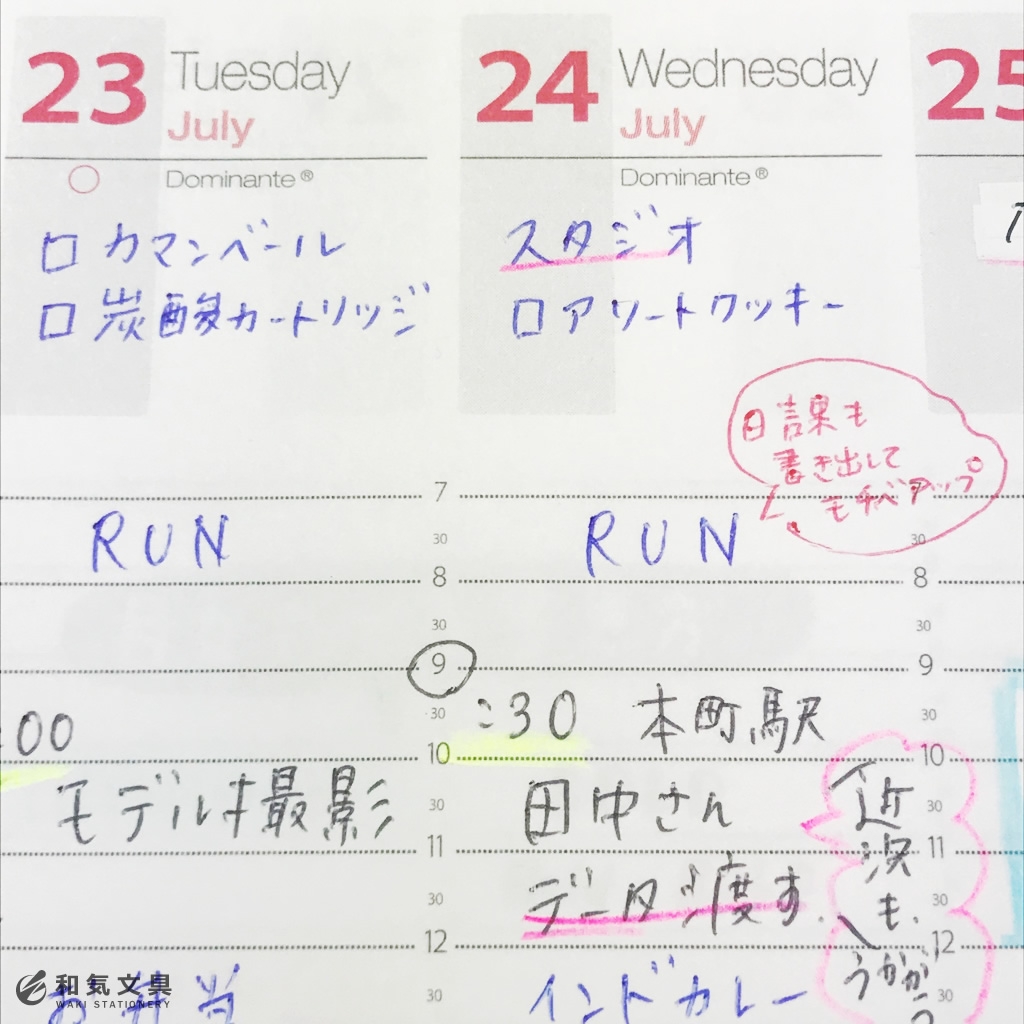 23 Tuesday
July
Dominante®
□ カマンベール
□ 炭酸カートリッジ
7
RUN
30
8
30
9
:00
30
10
モデルさ撮影
30
11
30
12
お弁当
30
24 Wednesday
July
Dominante®
スタジオ
□ アソートクッキー
日課も
書き出して
モチベアップ
RUN
30
8
30
9
:30 本町駅
30
10
田中さん
30
11
データ渡す
30
12
インドカレー
30
近況も、
うかがう
25
和気文具
WAKI STATIONERY